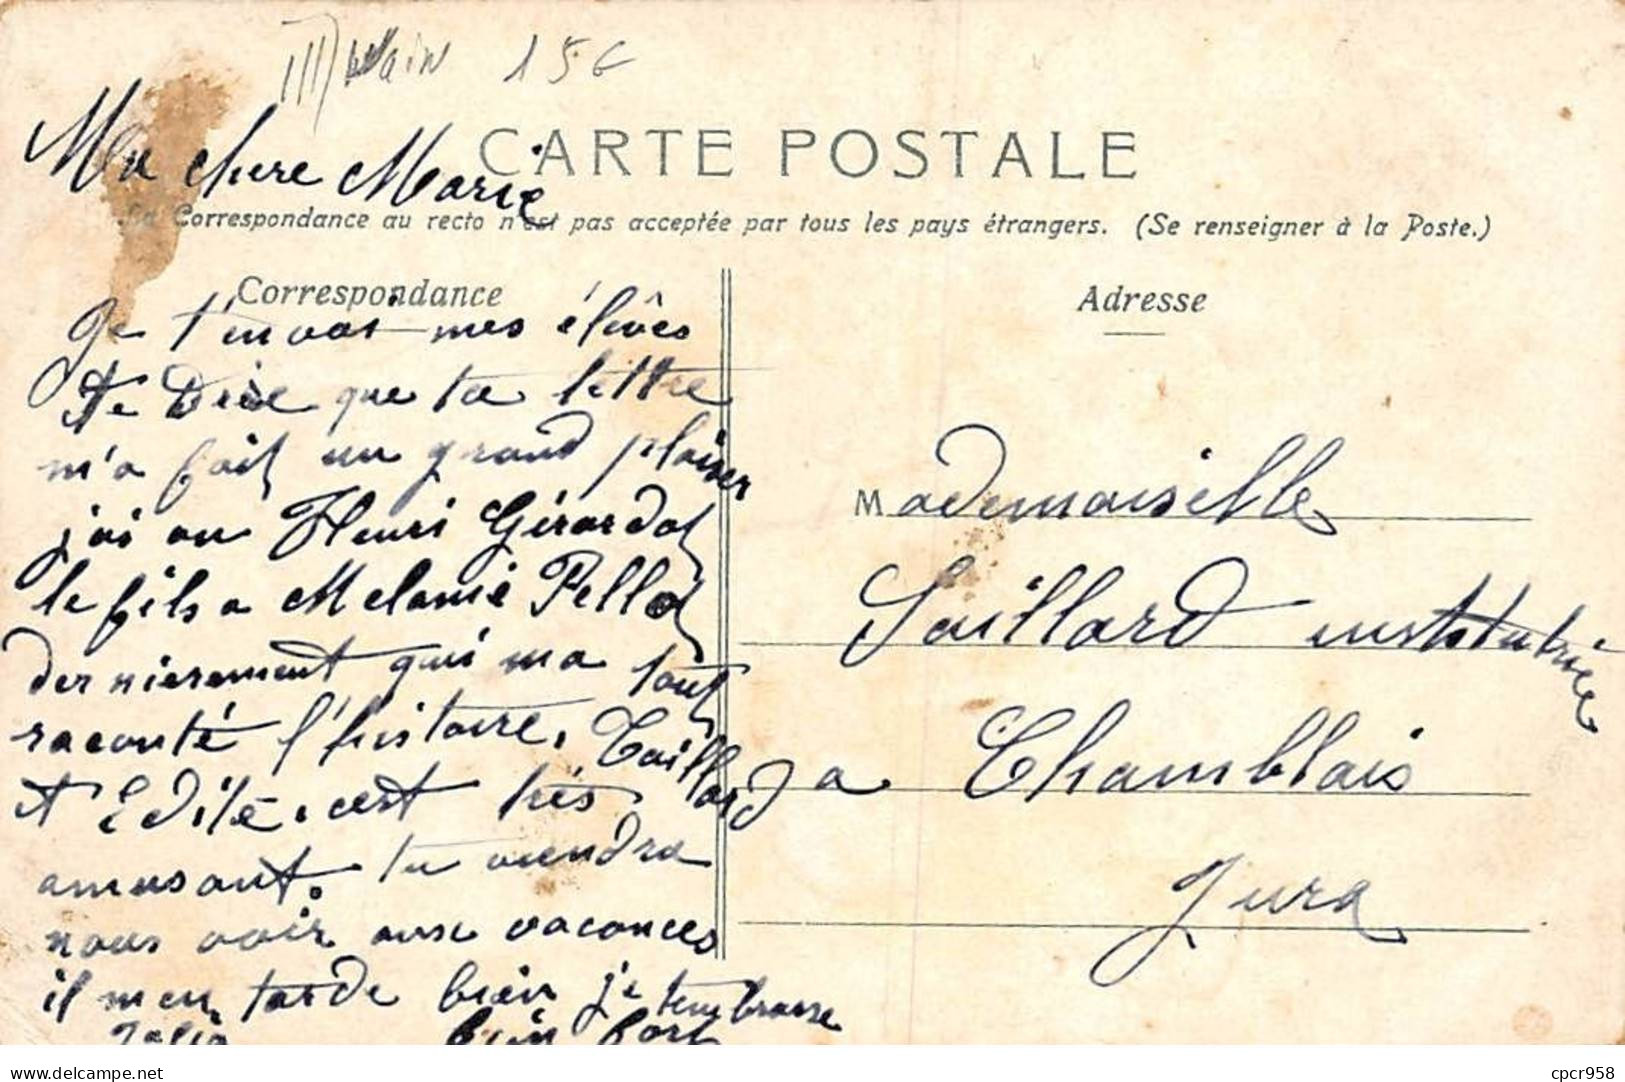 15 €
Ma chere Marie
CARTE POSTALE
La Correspondance au recto n'est pas acceptée par tous les pays étrangers. (Se renseigner à la Poste.)
Correspondance
Je t'envoi mes élèves
te Dire que ta lettre
m'a fait un grand plaiser
j'ai vu Henri Gérardot
le fils a Melanie Pellot
dernierement qui ma tout
raconté l'histoire. Taillard
et Edité. c'est très
amusant. tu viendra
nous voir aux vacances
il men tarde bien je tembrasse
bien fort
Adresse
Mademoiselle
Saillard institutrice
a Chamblais
Jura
www.delcampe.net
cpcr958